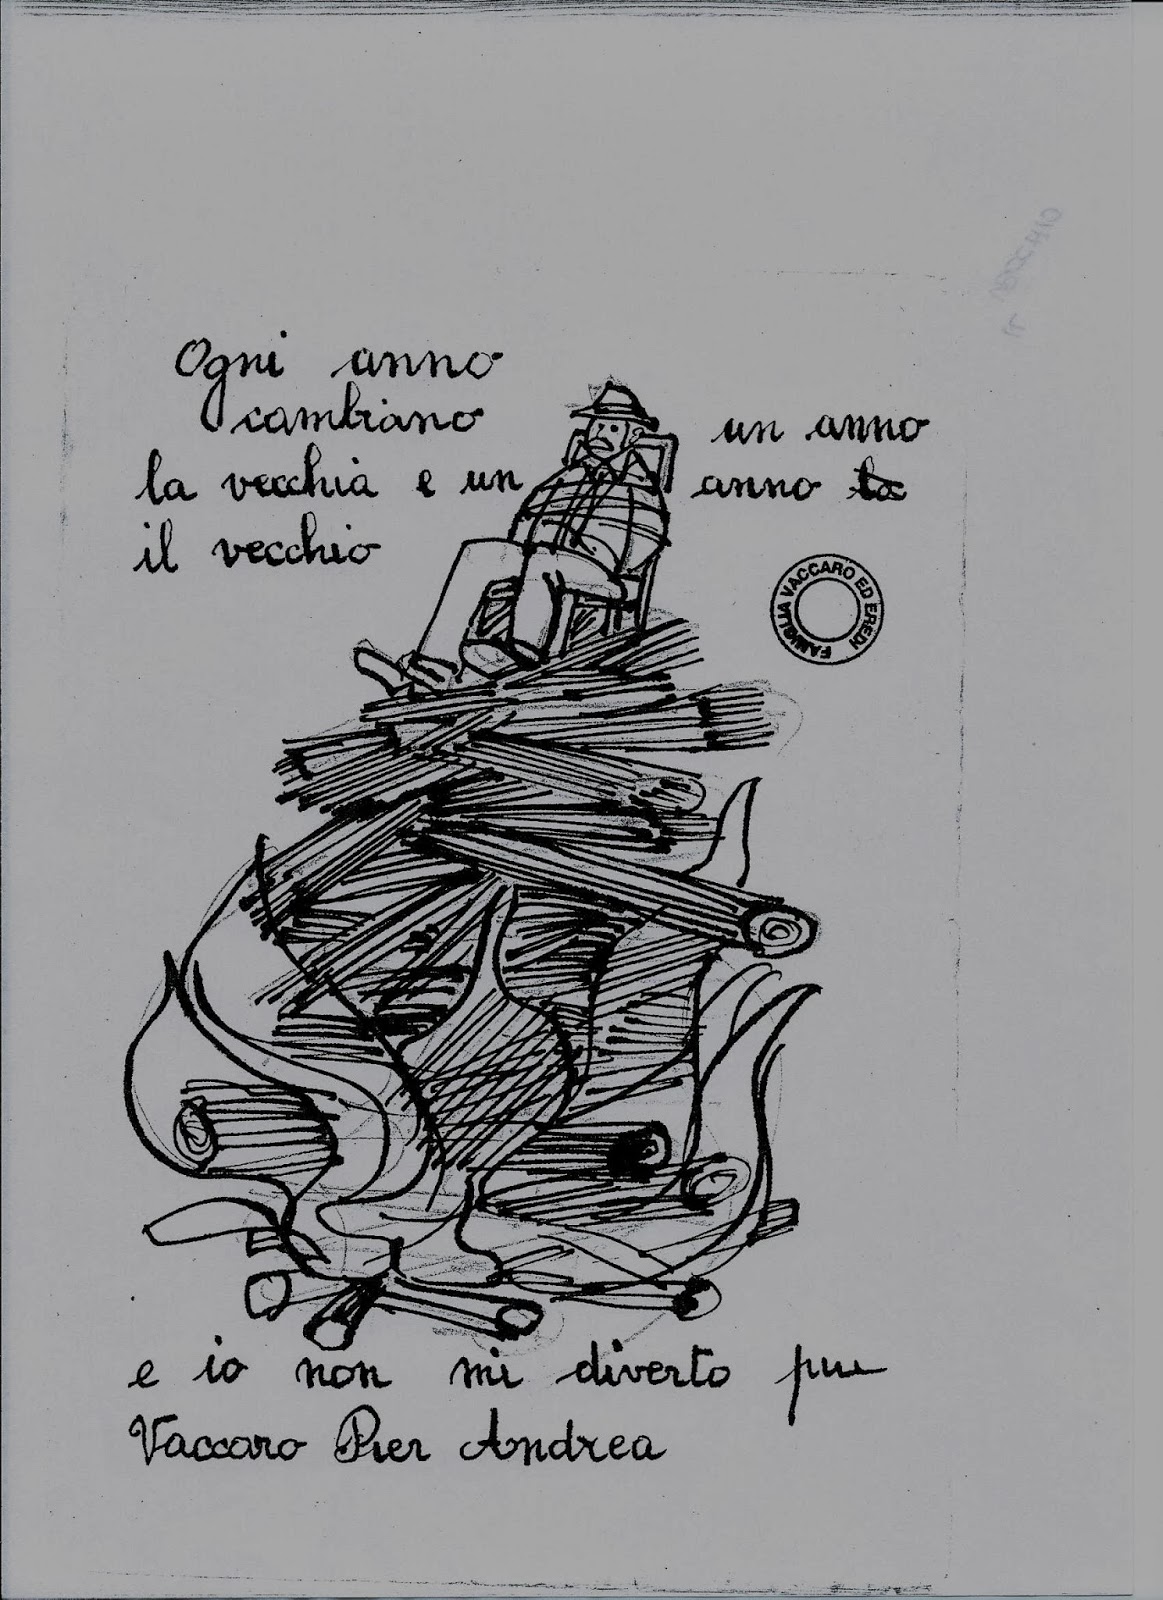 Ogni anno
cambiano un anno
la vecchia e un anno la
il vecchio
FAMIGLIA VACCARO ED EREDI
IL VECCHIO
e io non mi diverto piu
Vaccaro Pier Andrea